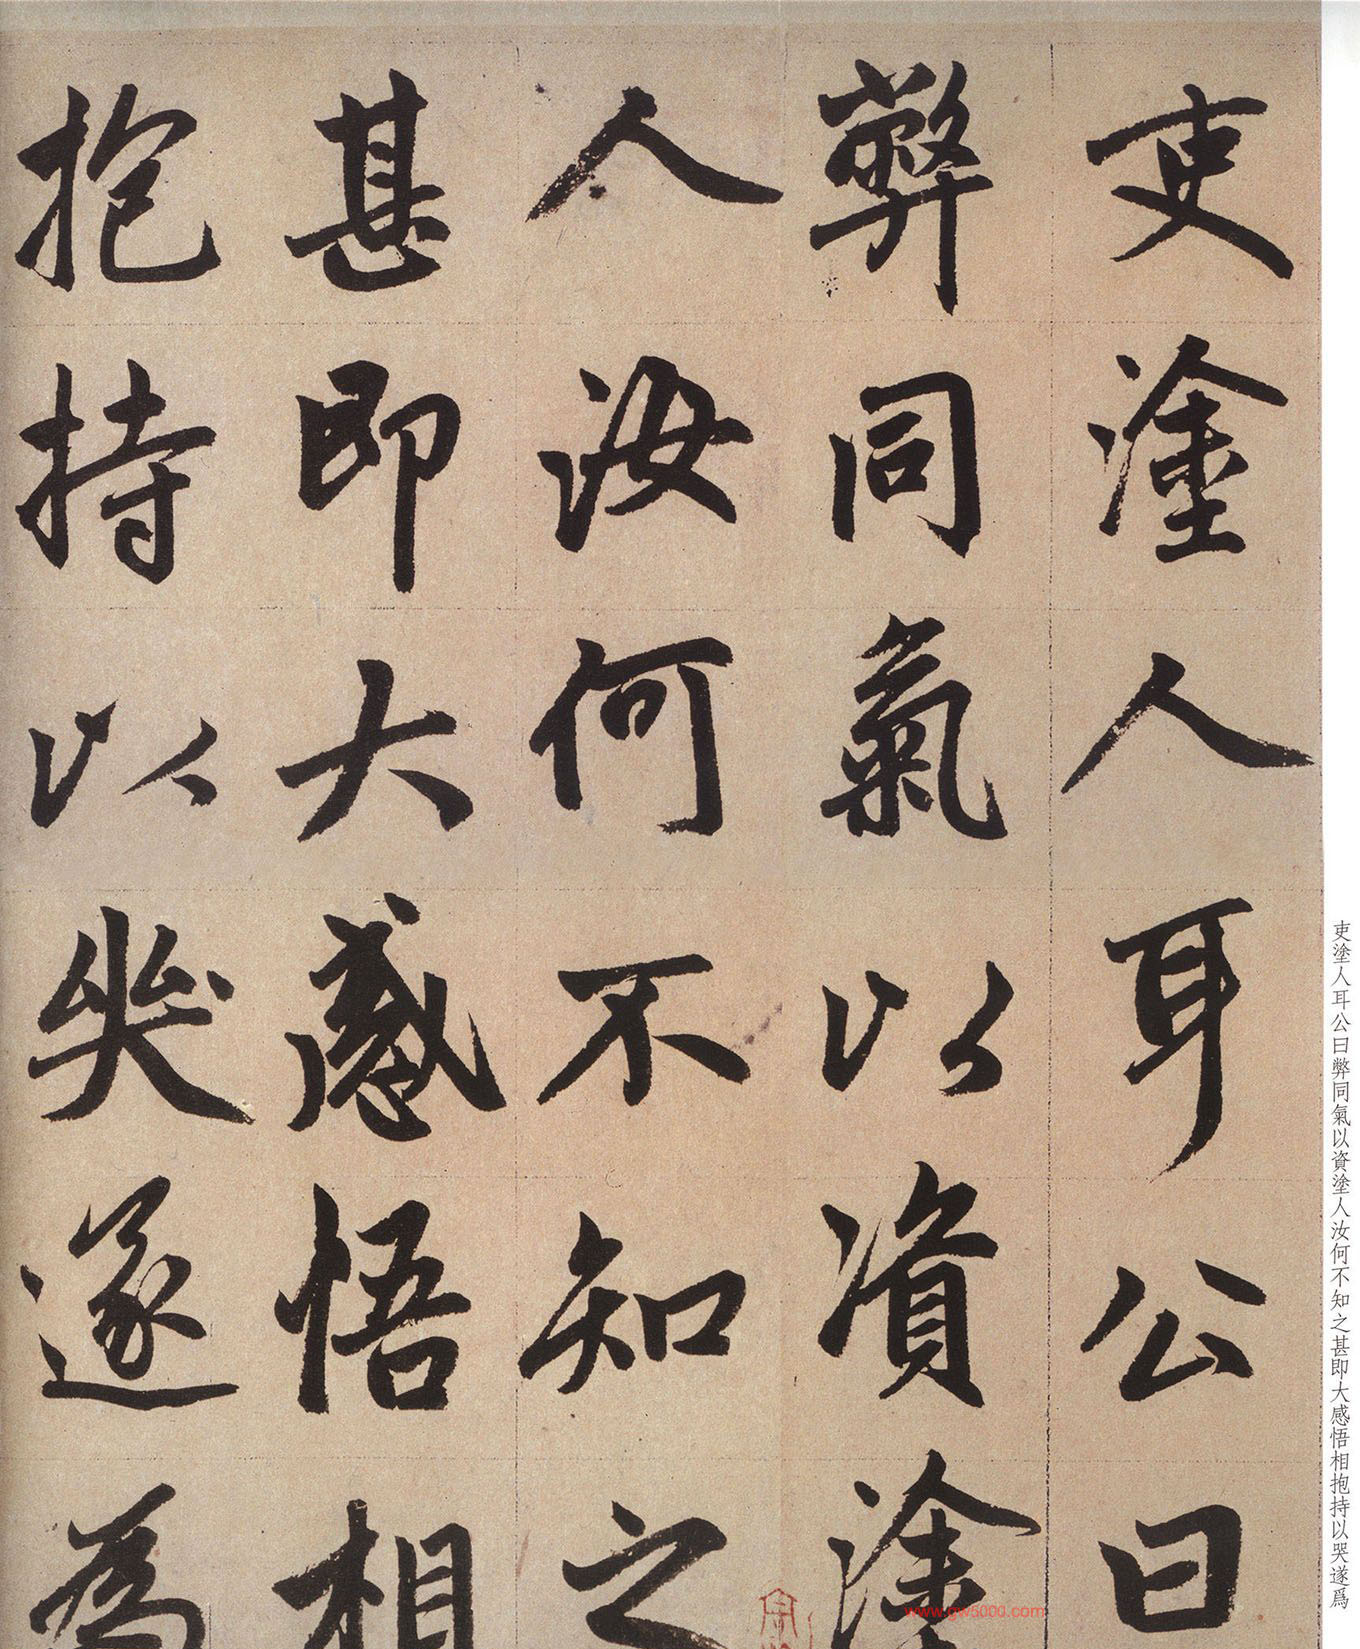 吏塗人耳公曰
弊同氣以資塗
人汝何不知之
甚即大感悟相
抱持以哭遂為
吏塗人耳公曰弊同氣以資塗人汝何不知之甚即大感悟相抱持以哭遂爲
www.gw5000.com